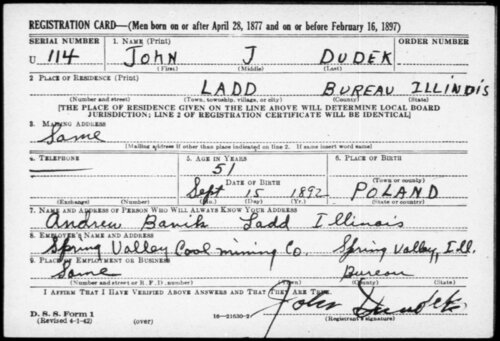 REGISTRATION CARD—(Men born on or after April 28, 1877 and on or before February 16, 1897)
SERIAL NUMBER 1. NAME (Print) ORDER NUMBER
U 114 JOHN J DUDEK
(First) (Middle) (Last)
2. PLACE OF RESIDENCE (Print)
LADD BUREAU ILLINOIS
(Number and street) (Town, township, village, or city) (County) (State)
[THE PLACE OF RESIDENCE GIVEN ON THE LINE ABOVE WILL DETERMINE LOCAL BOARD
JURISDICTION; LINE 2 OF REGISTRATION CERTIFICATE WILL BE IDENTICAL]
3. MAILING ADDRESS
Same
[Mailing address if other than place indicated on line 2. If same insert word same]
4. TELEPHONE 5. AGE IN YEARS 6. PLACE OF BIRTH
51
DATE OF BIRTH (Town or county)
Sept 15 1892 POLAND
(Exchange) (Number) (Mo.) (Day) (Yr.) (State or country)
7. NAME AND ADDRESS OF PERSON WHO WILL ALWAYS KNOW YOUR ADDRESS
Andrew Banik Ladd Illinois
8. EMPLOYER'S NAME AND ADDRESS
Spring Valley Coal mining Co. Spring Valley, Ill.
9. PLACE OF EMPLOYMENT OR BUSINESS
Same Bureau
(Number and street or R. F. D. number) (Town) (County) (State)
I AFFIRM THAT I HAVE VERIFIED ABOVE ANSWERS AND THAT THEY ARE TRUE.
D. S. S. Form 1 John Dudek
(Revised 4-1-42) (over) 16—21630-2 (Registrant's signature)